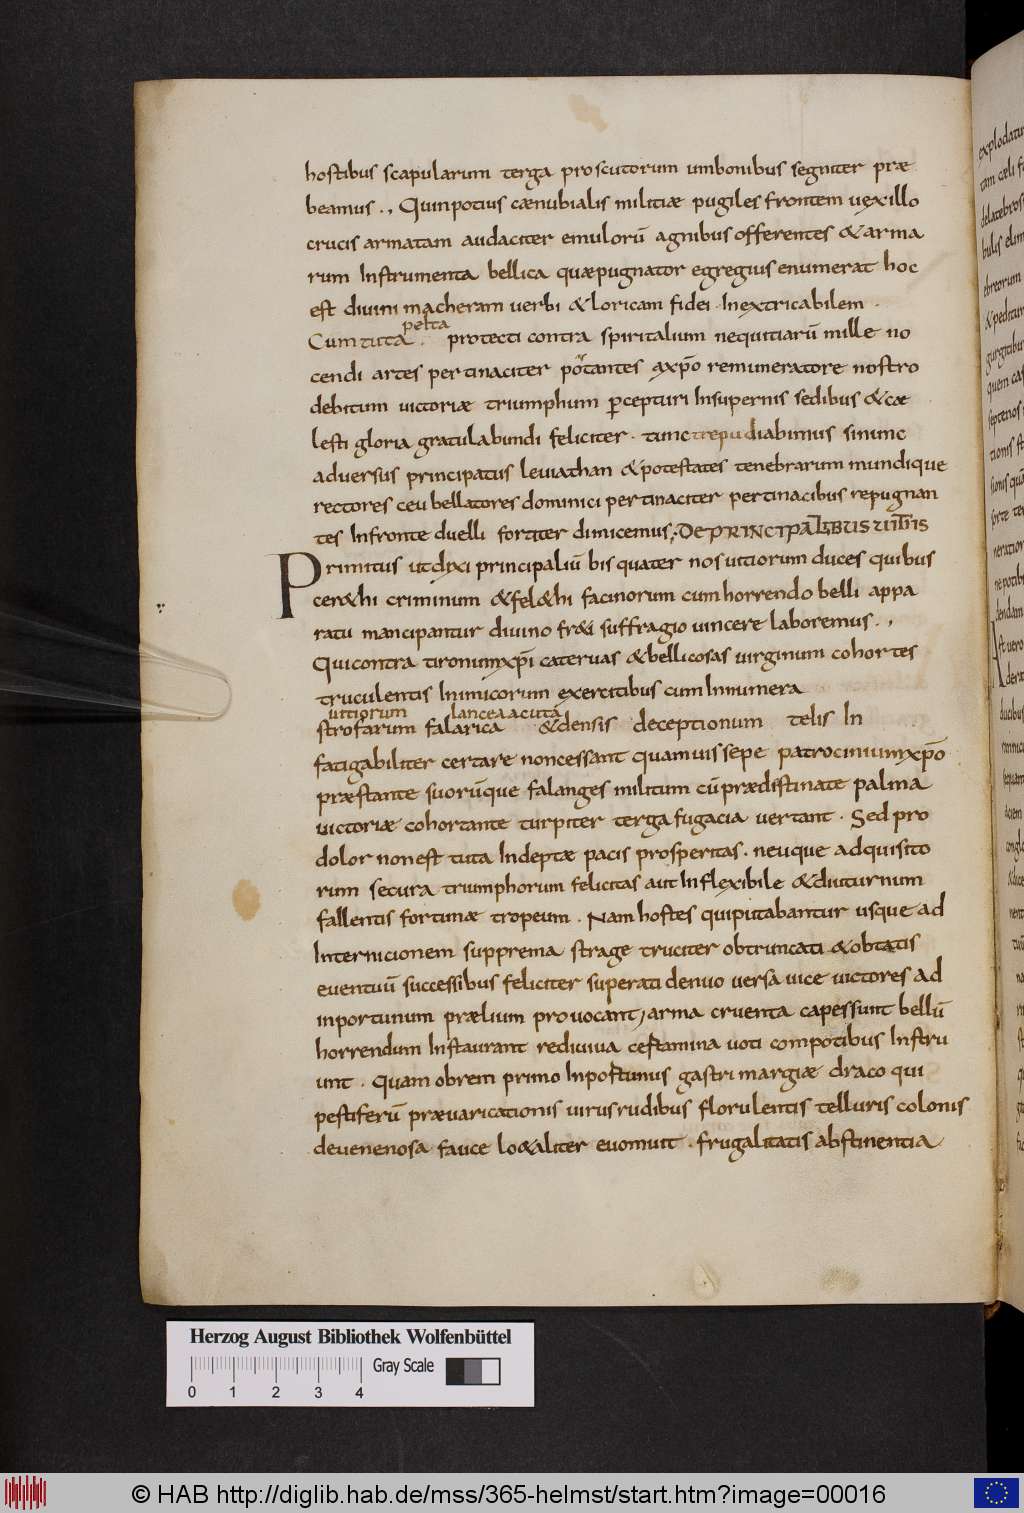 hostibus scapularum terga proscutorum umbonibus segniter præ
beamus., Quinpotius cænubialis militiæ pugiles frontem uęxillo
crucis armatam audaciter emulorū agnibus offerentes & arma
rum Instrumenta bellica quæpugnator egregius enumerat hoc
est diuini macheram uerbi & loricam fidei. Inextricabilem.
pelta
Cum tuta. protecti contra spiritalium nequitiarū mille no
cendi artes pertinaciter portantes axpō remuneratore nostro
debitum uictoriæ triumphum ꝑcepturi Insupernis sedibus & cæ
lesti gloria gratulabundi feliciter. tunc trepudiabimus sinunc
aduersus principatus leuiathan & potestates tenebrarum mundique
rectores ceu bellatores dominici pertinaciter pertinacibus repugnan
tes Infronte duelli fortiter dimicemus; DE PRINCIPALIBUS UITIIS
Primitus utdixi principaliū bis quater nos uitiorum duces quibus
cer&hi criminum & fel&hi facinorum cum horrendo belli appa
ratu mancipantur diuino freti suffragio uincere laboremus.,
Qui contra tironum xp̄i cateruas & bellicosas uirginum cohortes
truculentis Inimicorum exercitibus cum Innumera
uitiorum lancea acuta
strofarum falarica & densis deceptionum telis In
fatigabiliter certare noncessant quamuis sepe patrocinium xpō
præstante suorūque falanges militum cū prædistinate palma
uictoriæ cohortante turpiter terga fugacia uertant. Sed pro
dolor non est tuta Indeptæ pacis prosperitas. neuque adquisito
rum secura triumphorum felicitas aut Inflexibile & diuturnum
fallentis fortunæ tropeum. Nam hostes qui putabantur usque ad
Internicionem supprema strage truciter obtruncati & obtatis
euentuū successibus feliciter superati denuo uersa uice uictores ad
inportunum prælium prouocant, arma cruenta capessunt bellū
horrendum Instaurant rediuiua certamina uoti compotibus Instru
unt. Quam obrem primo Inportunus gastrimargiæ draco qui
pestiferū præuaricationis uirus rudibus florulentis telluris colonis
deuenenosa fauce lo&aliter euomuit. frugalitatis abstinentia
Herzog August Bibliothek Wolfenbüttel
Gray Scale
0 1 2 3 4
© HAB http://diglib.hab.de/mss/365-helmst/start.htm?image=00016